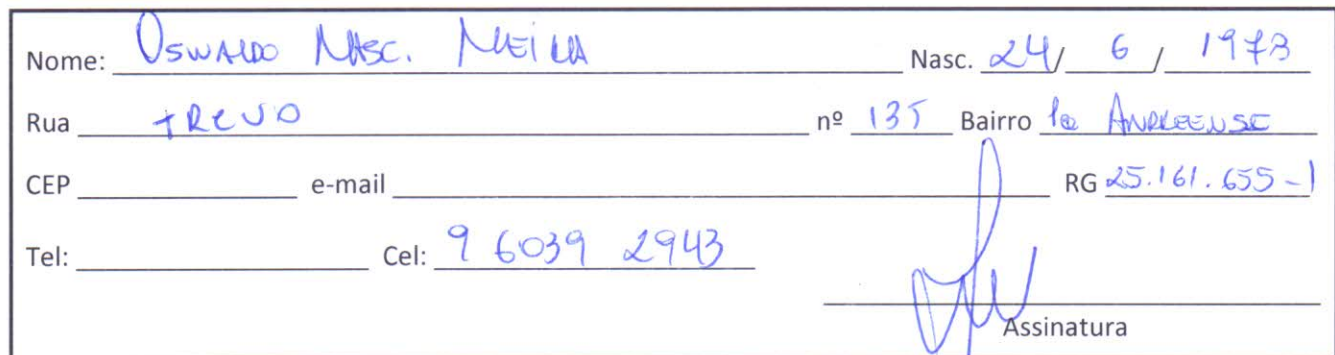 Nome: OSWALDO NASC. MEIRA Nasc. 24/ 6 / 1973
Rua TREVO nº 135 Bairro Pq ANDREENSE
CEP e-mail RG 25.161.655-1
Tel: Cel: 9 6039 2943
Assinatura